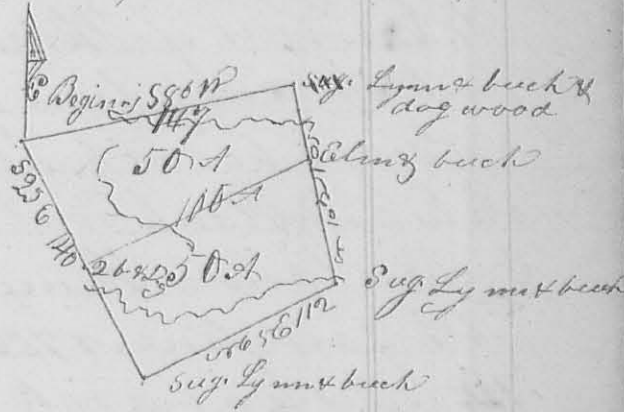 Begin'g S 86 W
147
Sug. Lynn & buch &
dog wood
50 A
Elm & buch
100 A
S 25 E 140
50 A
Sug Lynn & buch
N 65 E 112
Sug. Lynn & buch